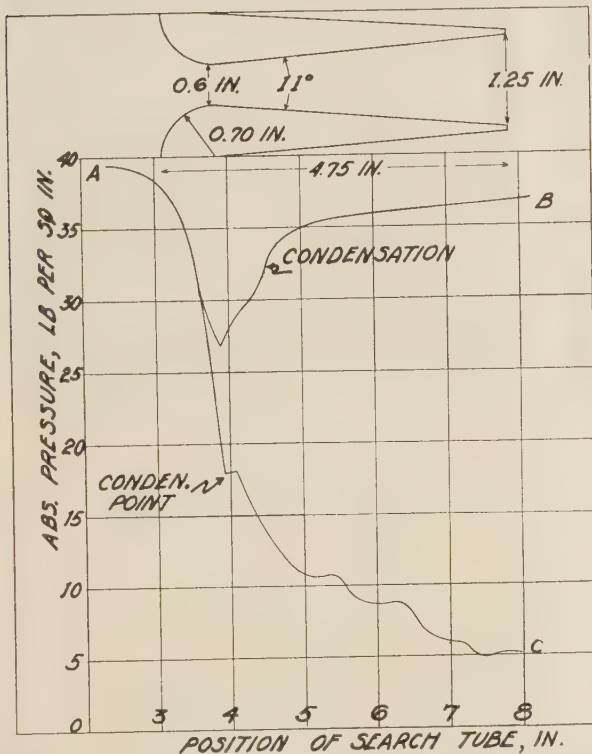 0.6 IN.
11°
1.25 IN.
0.70 IN.
4.75 IN.
ABS. PRESSURE, LB PER SQ IN.
40
35
30
25
20
15
10
5
0
A
B
CONDENSATION
CONDEN.
POINT
C
3
4
5
6
7
8
POSITION OF SEARCH TUBE, IN.